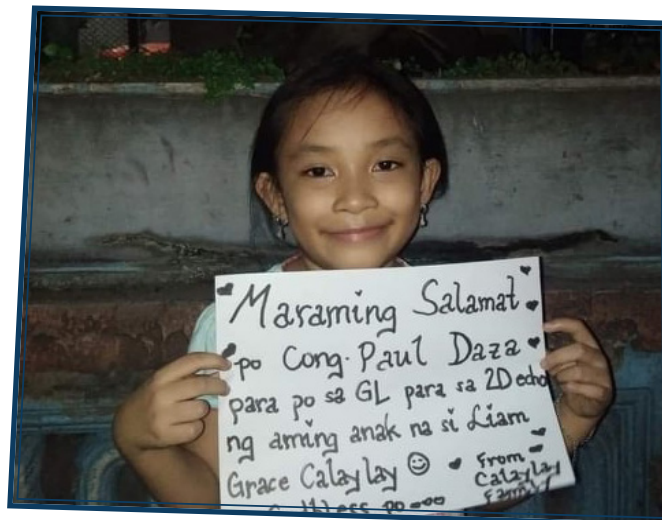 Maraming Salamat
po Cong. Paul Daza
para po sa GL para sa 2D echo
ng aming anak na si Liam
Grace Calaylay ☺
From
Calaylay
Family
bless po